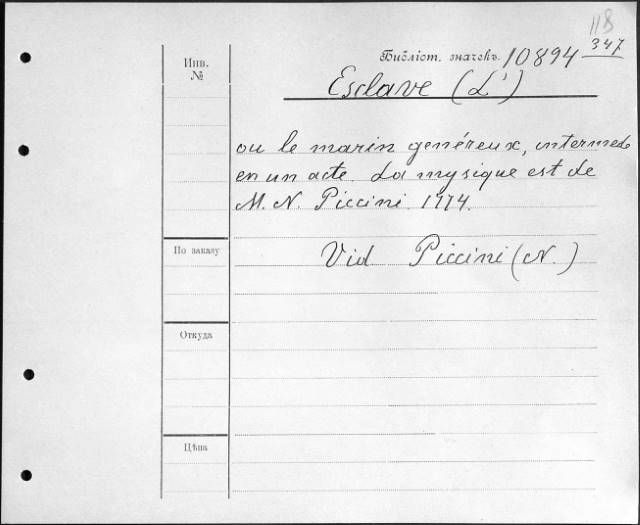 118
Инв.
№
Библіот. значекъ. 10894 347
Esclave (L')
ou le marin genéreux, intermede
en un acte. La mysique est de
M. N. Piccini. 1774.
По заказу
Vid Piccini (N.)
Откуда
Цѣна